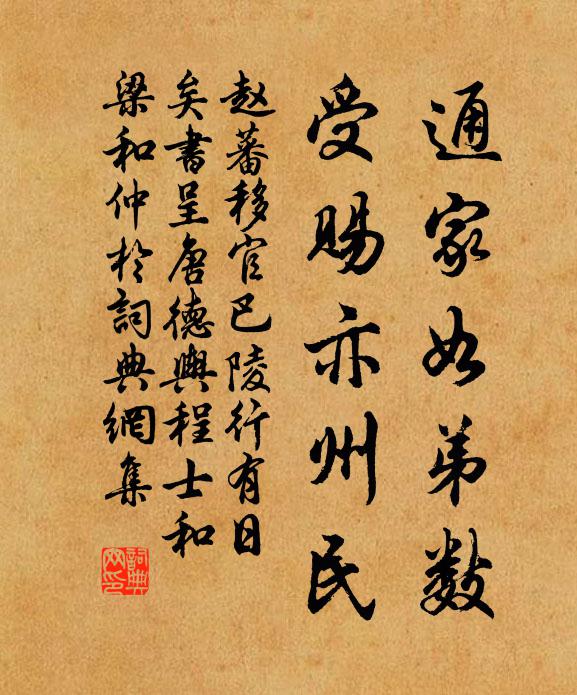 通家如弟数
受賜亦州民
赵蕃移官巴陵行有日
矣書呈唐德輿程士和
梁和仲於詞典網集
詞典网印